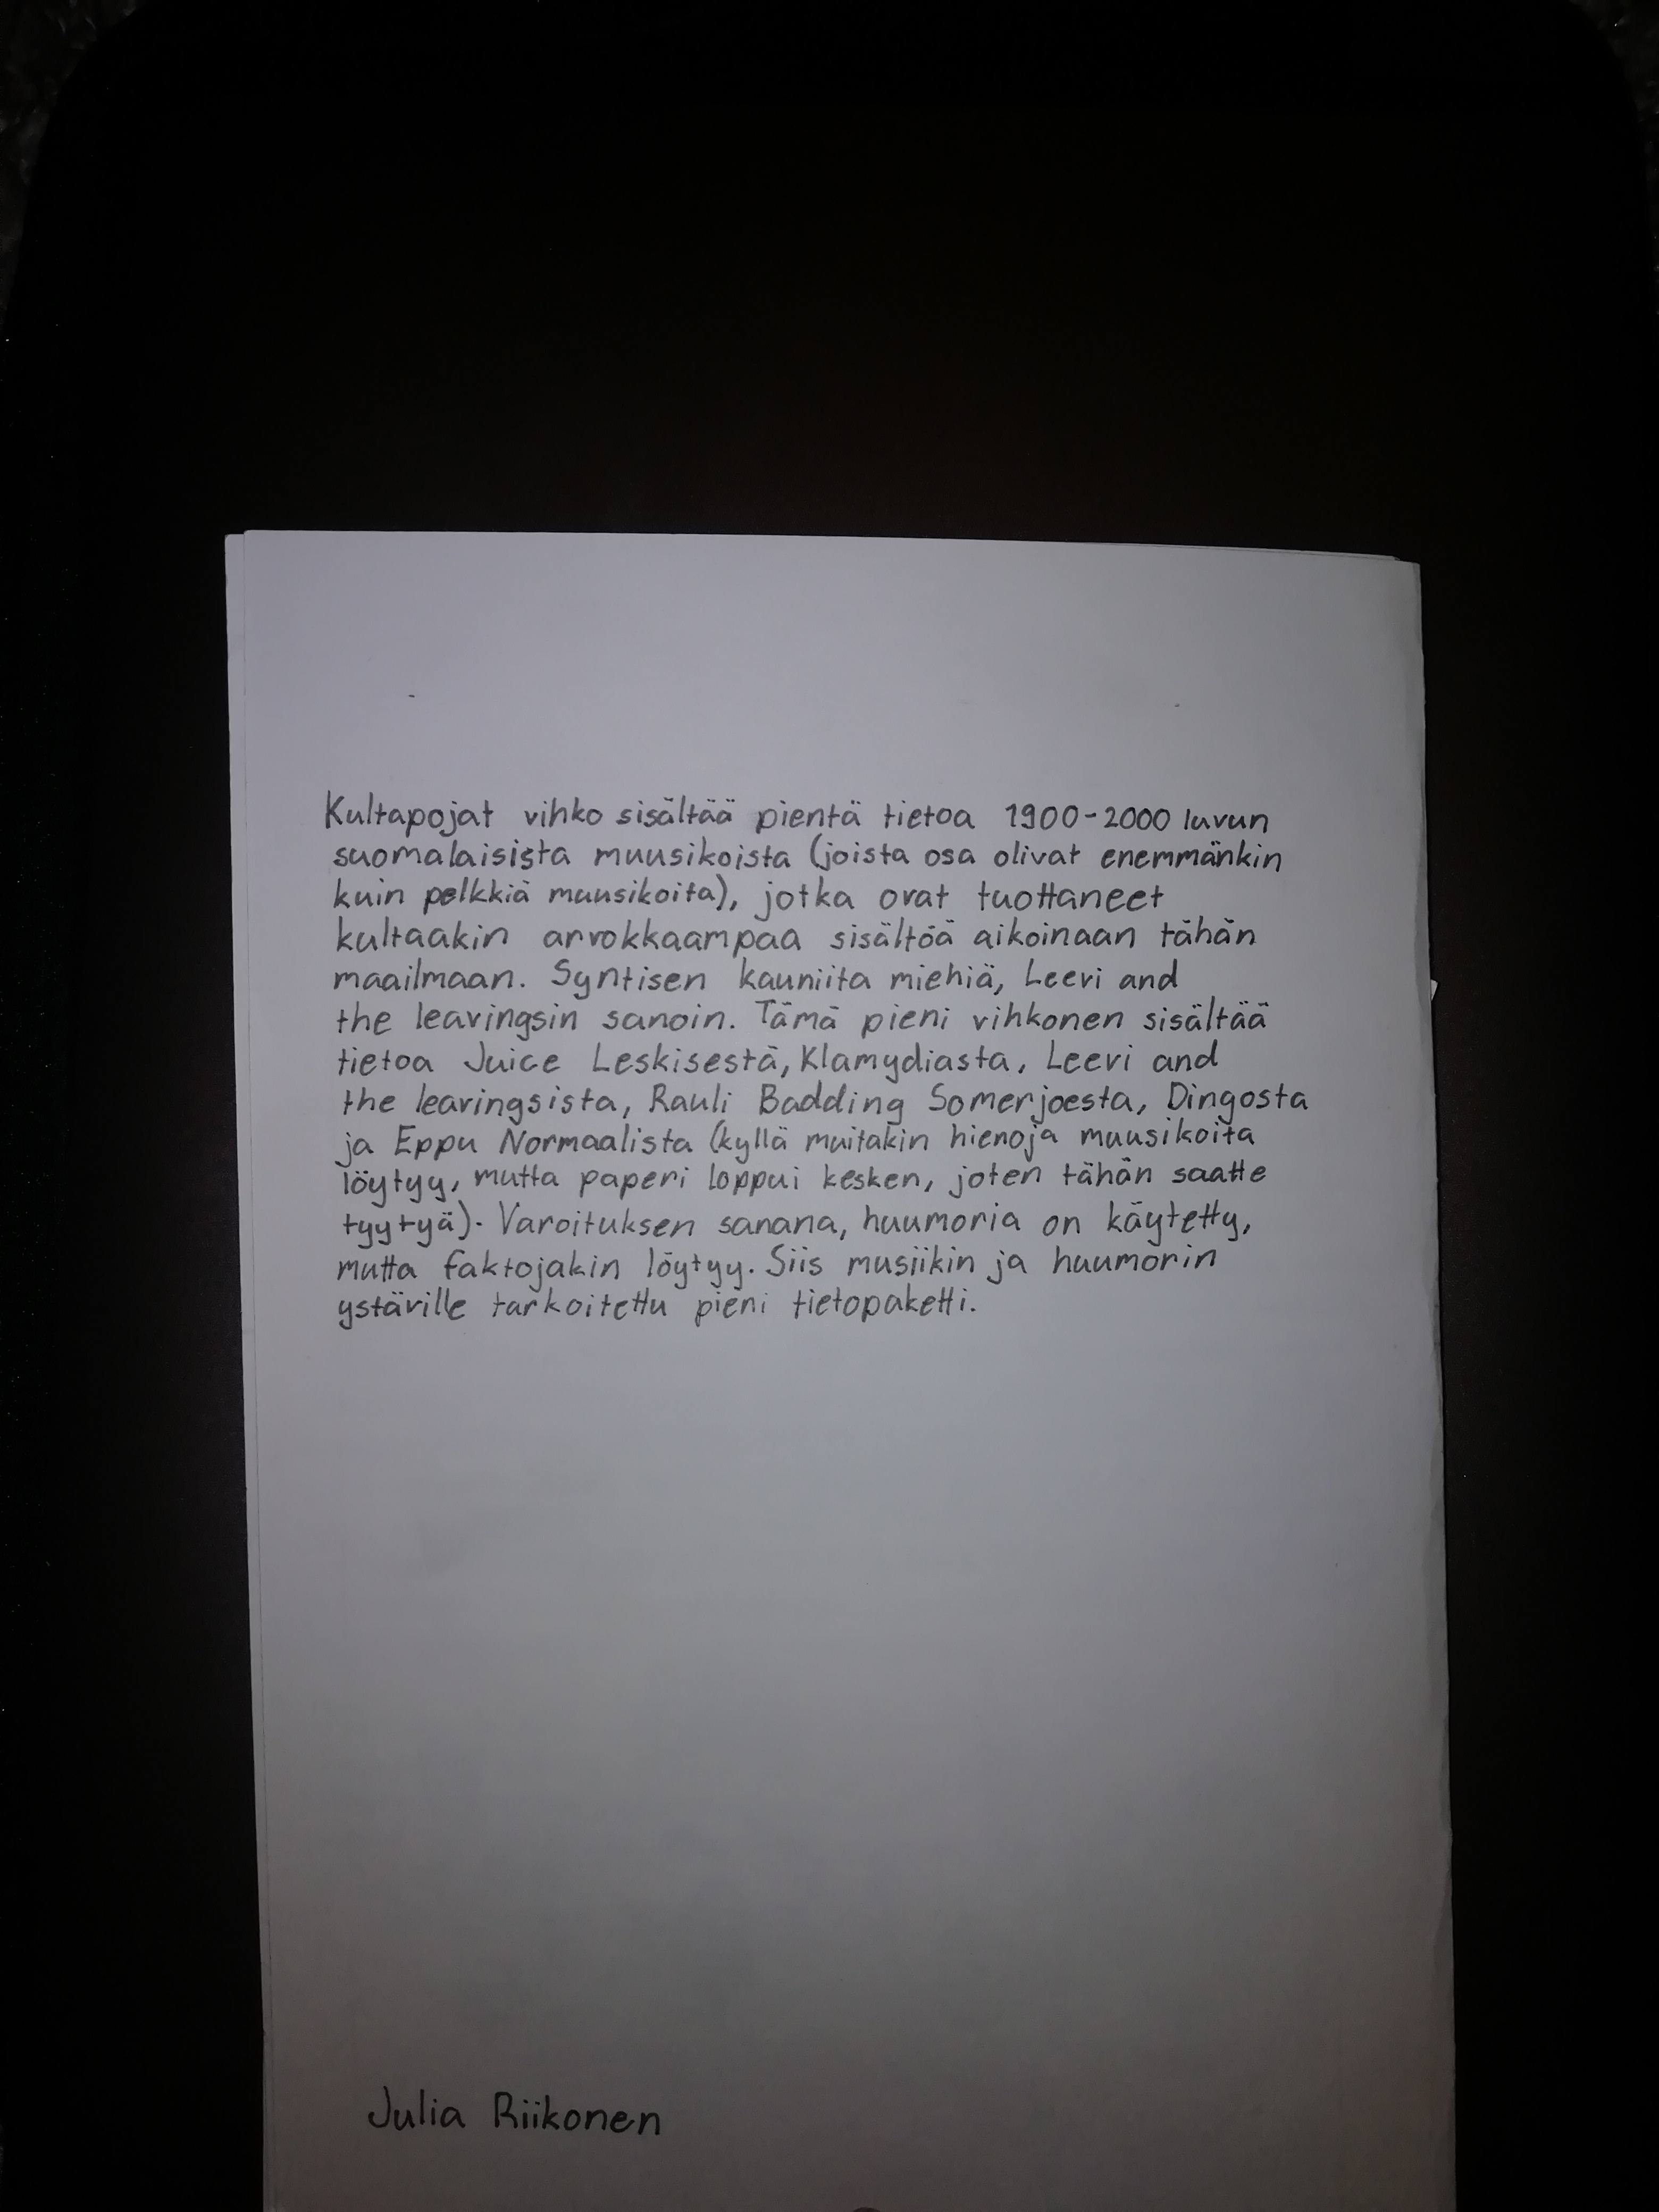 Kultapojat vihko sisältää pientä tietoa 1900-2000 luvun
suomalaisista muusikoista (joista osa olivat enemmänkin
kuin pelkkiä muusikoita), jotka ovat tuottaneet
kultaakin arvokkaampaa sisältöä aikoinaan tähän
maailmaan. Syntisen kauniita miehiä, Leevi and
the leavingsin sanoin. Tämä pieni vihkonen sisältää
tietoa Juice Leskisestä, Klamydiasta, Leevi and
the leavingsista, Rauli Badding Somerjoesta, Dingosta
ja Eppu Normaalista (kyllä muitakin hienoja muusikoita
löytyy, mutta paperi loppui kesken, joten tähän saatte
tyytyä). Varoituksen sanana, huumoria on käytetty,
mutta faktojakin löytyy. Siis musiikin ja huumorin
ystäville tarkoitettu pieni tietopaketti.
Julia Riikonen